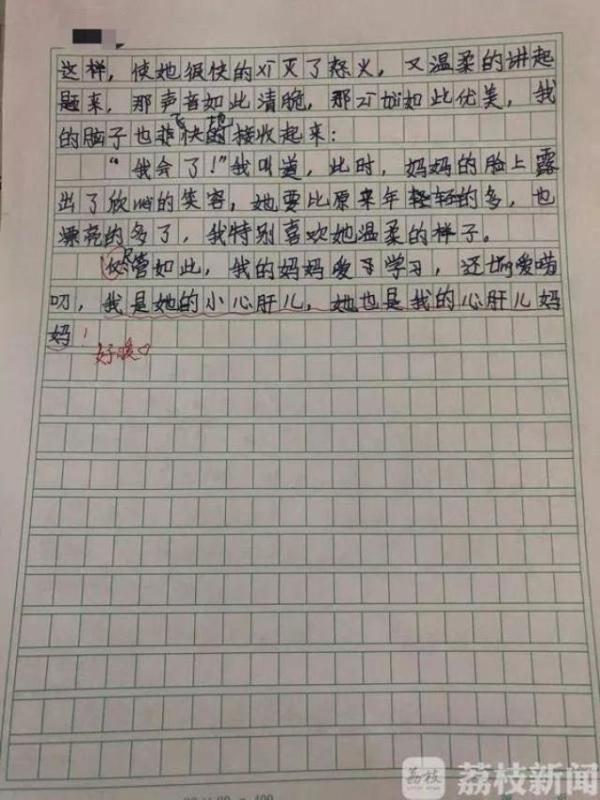 这样，使她很快的xī灭了怒火，又温柔的讲起
题来，那声音如此清脆，那zī 如此优美，我
飞 地
的脑子也非快的接收起来：
“我会了！”我叫道，此时，妈妈的脸上露
出了欣 的笑容，她要比原来年轻轻的多，也
漂亮的多了，我特别喜欢她温柔的样子。
尽
管如此，我的妈妈爱于学习，还 爱唠
叨，我是她的小心肝儿，她也是我的心肝儿妈
妈！
好暖
荔枝
荔枝新闻